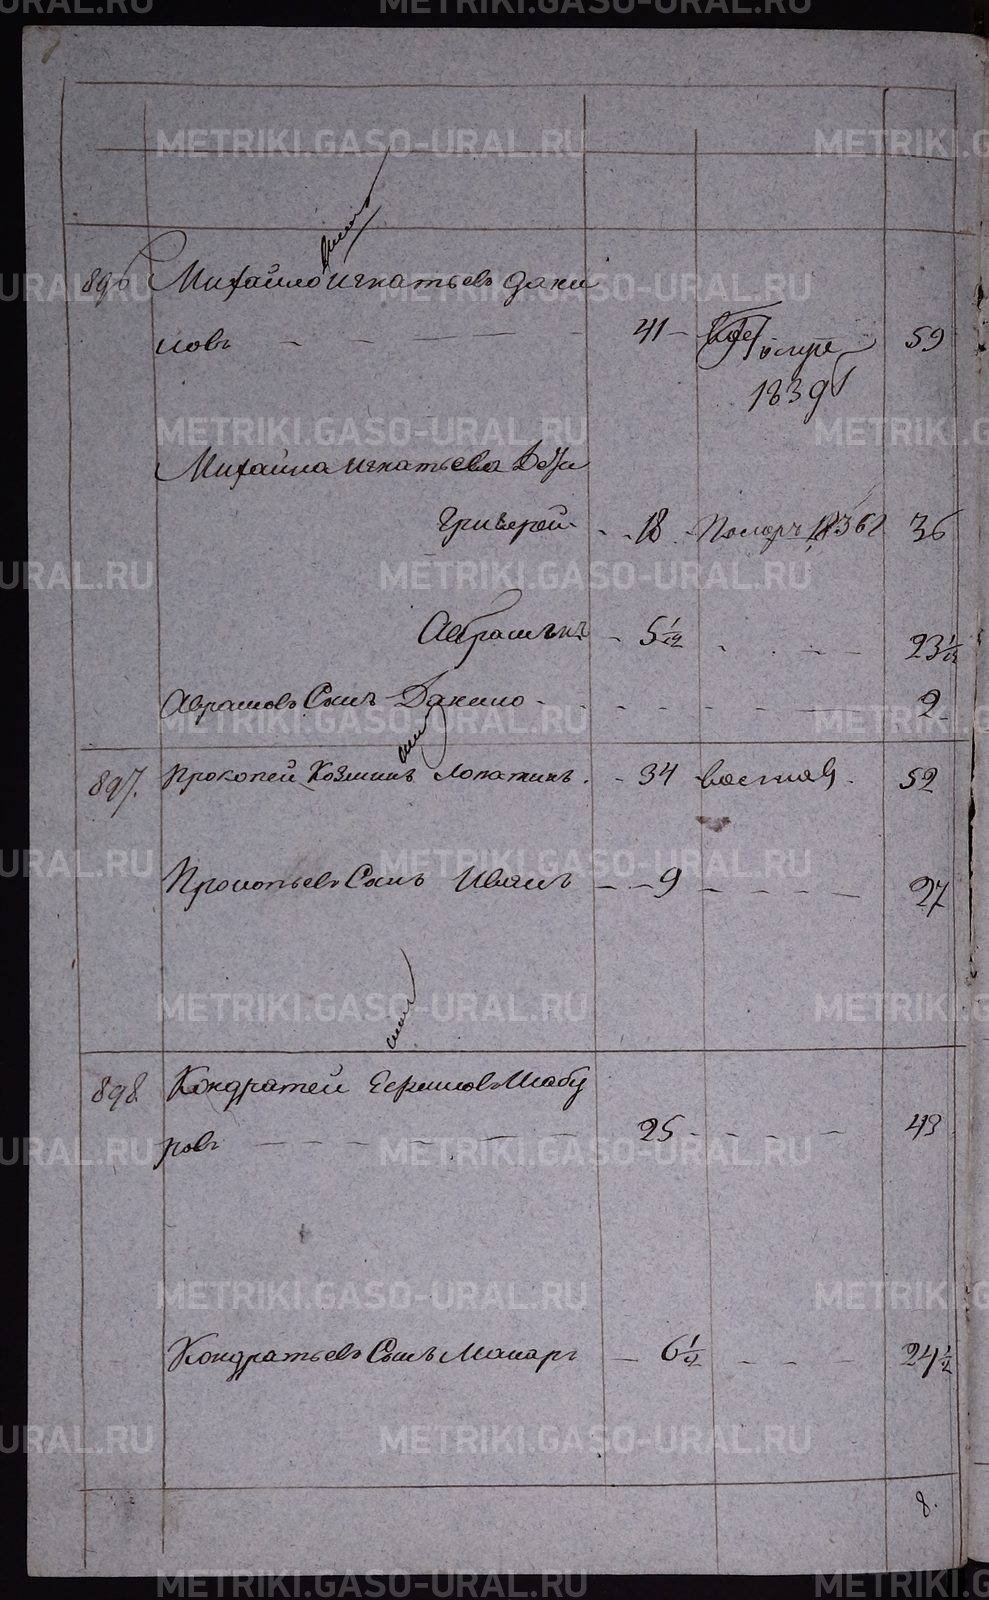 896 Михайло Игнатьевъ Дани
ловъ 41 59
1839
Михайла Игнатьева Дѣти
Григорей 18 Померъ 1836 36
Абрамъ 5½ 23½
Абрамовъ Сынъ Данило 2
897. Прокопей Козминъ Лопатинъ. 34 52
Прокопьевъ Сынъ Иванъ 9 27
898 Кондратей Ефимовъ Шабу
ровъ 25 43
Кондратьевъ Сынъ Макаръ 6½ 24½
8.
METRIKI.GASO-URAL.RU